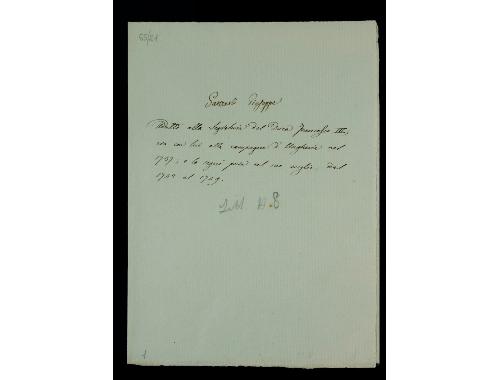 65/21
Giuseppe
Addetto alla Segreteria del Duca Francesco III,
era con lui alla campagna d'Ungheria nel
1737, e lo seguì poi nel suo esiglio dal
1742 al 1749.
8
1